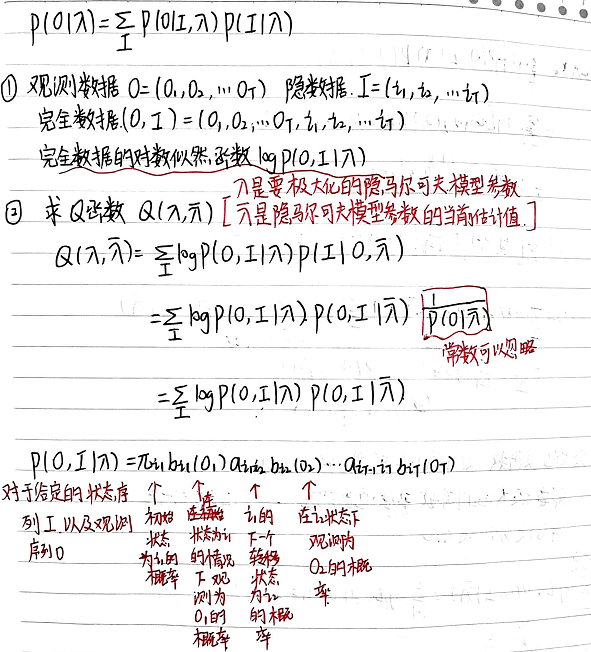 P(O|λ)=∑_I P(O|I,λ)P(I|λ)
① 观测数据 O=(O₁,O₂,…O_T) 隐数据. I=(i₁,i₂,…i_T)
完全数据.(O,I)=(O₁,O₂,…O_T,i₁,i₂,…i_T)
完全数据的对数似然函数 logP(O,I|λ)
λ是要极大化的隐马尔可夫模型参数
② 求Q函数 Q(λ,λ̄) [λ̄是隐马尔可夫模型参数的当前估计值.]
Q(λ,λ̄)=∑_I logP(O,I|λ)P(I|O,λ̄)
=∑_I logP(O,I|λ).P(O,I|λ̄) 1/P(O|λ̄)
常数可以忽略
=∑_I logP(O,I|λ) P(O,I|λ̄)
P(O,I|λ)=π_{i₁}b_{i₁}(O₁)a_{i₁i₂}b_{i₂}(O₂)…a_{i_{T-1}i_T}b_{i_T}(O_T)
对于给定的状态序
列I以及观测
序列O
↑ ↑ ↑ ↑
初始
状态
为i₁的
概率
在
状态为i₁
的情况
下观
测为
O₁的
概率
i₁的
下一个
转移
状态
为i₂
的概
率
在i₂状态下
观测为
O₂的概
率.